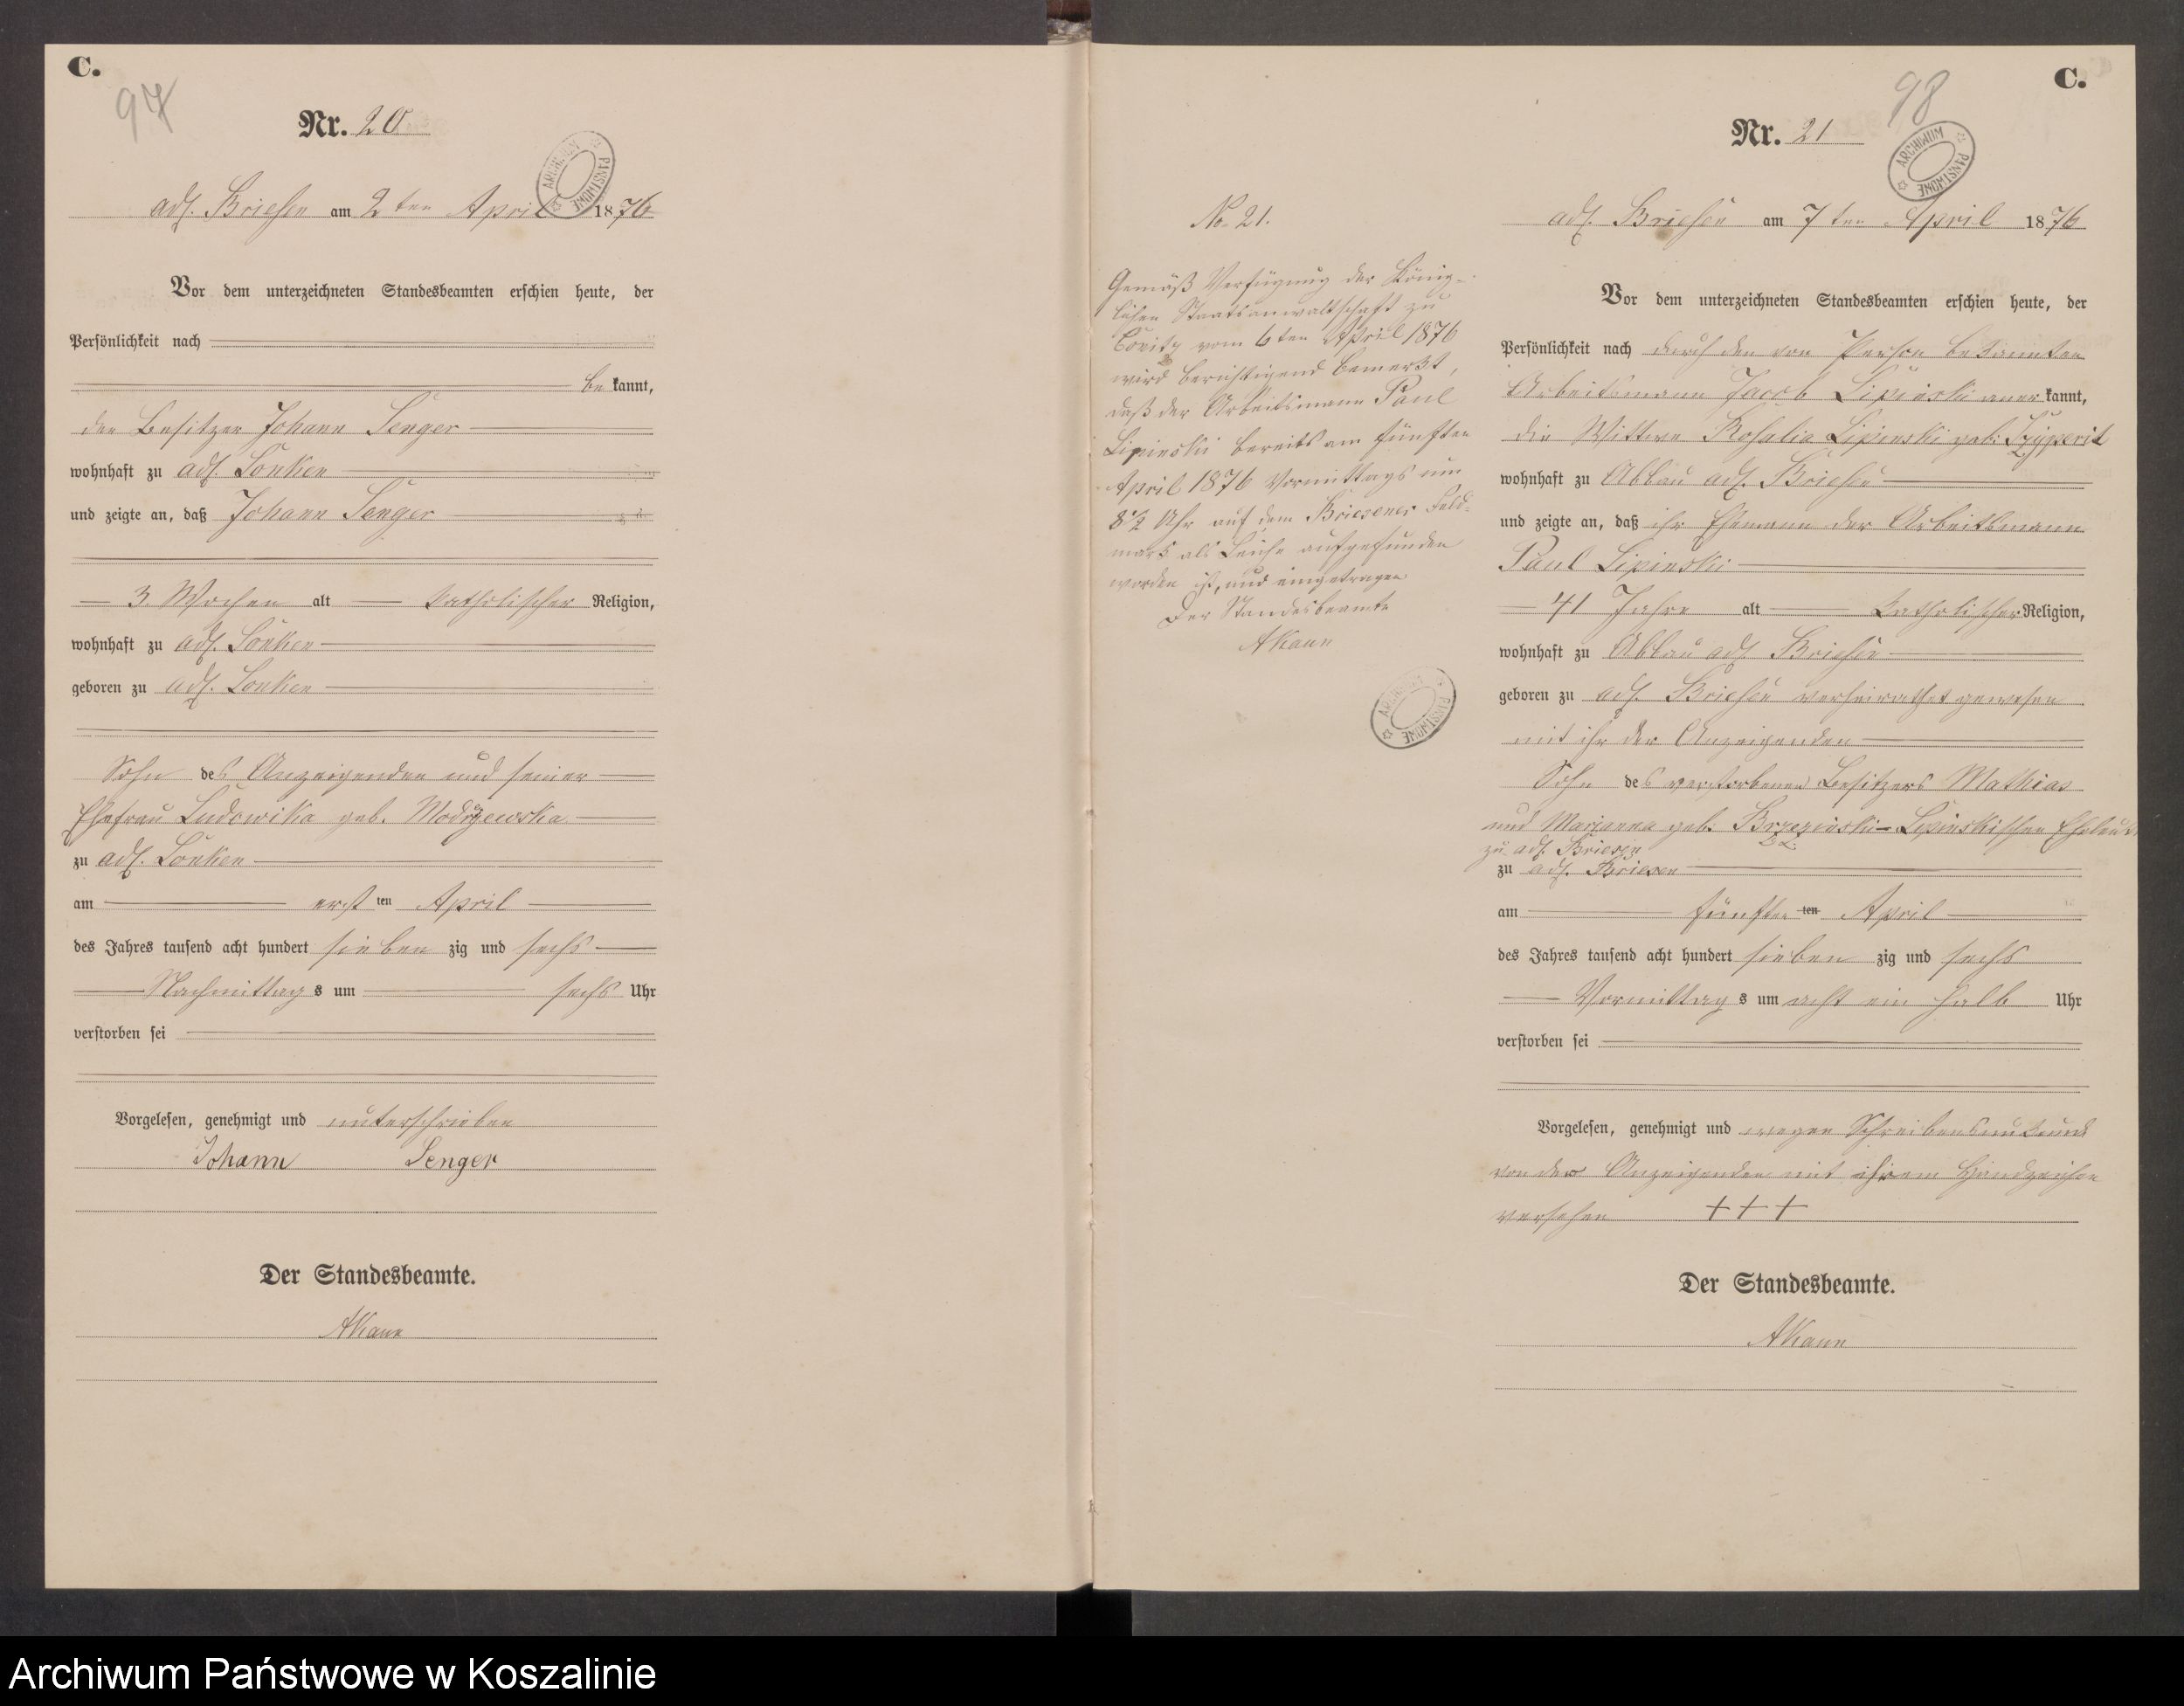 C.
97
Nr. 20
ARCHIWUM PAŃSTWOWE
adl. Briesen am 2ten April 1876
Vor dem unterzeichneten Standesbeamten erschien heute, der
Persönlichkeit nach
be kannt,
der Besitzer Johann Senger
wohnhaft zu adl. Lonken
und zeigte an, daß Johann Senger
3 Wochen alt katholischer Religion,
wohnhaft zu adl. Lonken
geboren zu adl. Lonken
Sohn des Anzeigenden und seiner
Ehefrau Ludowika geb. Modrzewska
zu adl. Lonken
am ersten April
des Jahres tausend acht hundert sieben zig und sechs
Nachmittags um sechs Uhr
verstorben sei
Vorgelesen, genehmigt und unterschrieben
Johann Senger
Der Standesbeamte.
AKann
No. 21.
Gemäß Verfügung der König-
lichen Staatsanwaltschaft zu
Conitz vom 6ten April 1876
wird berichtigend bemerkt,
daß der Arbeitsmann Paul
Lipinski bereits am fünften
April 1876 Vormittags um
8½ Uhr auf dem Briesener Feld-
mark als Leiche aufgefunden
worden ist, und eingetragen
Der Standesbeamte
AKann
ARCHIWUM PAŃSTWOWE
C.
98
Nr. 21
ARCHIWUM PAŃSTWOWE
adl. Briesen am 7ten April 1876
Vor dem unterzeichneten Standesbeamten erschien heute, der
Persönlichkeit nach durch den von Person bekannten
Arbeitsmann Jacob Lipinski anerkannt,
die Wittwe Rosalia Lipinski geb.
wohnhaft zu Abbau adl. Briesen
und zeigte an, daß ihr Ehemann der Arbeitsmann
Paul Lipinski
41 Jahre alt katholischer Religion,
wohnhaft zu Abbau adl. Briesen
geboren zu adl. Briesen verheirathet gewesen
mit ihr der Anzeigenden
Sohn des verstorbenen Besitzers Mathias
und Marianna geb. Brzezinski-Lipinskischen Eheleute
zu adl. Briesen
zu adl. Briesen
am fünften ten April
des Jahres tausend acht hundert sieben zig und sechs
Vormittags um acht ein halb Uhr
verstorben sei
Vorgelesen, genehmigt und wegen Schreibensunkunde
von der Anzeigenden mit ihrem Handzeichen
versehen +++
Der Standesbeamte.
AKann
Archiwum Państwowe w Koszalinie